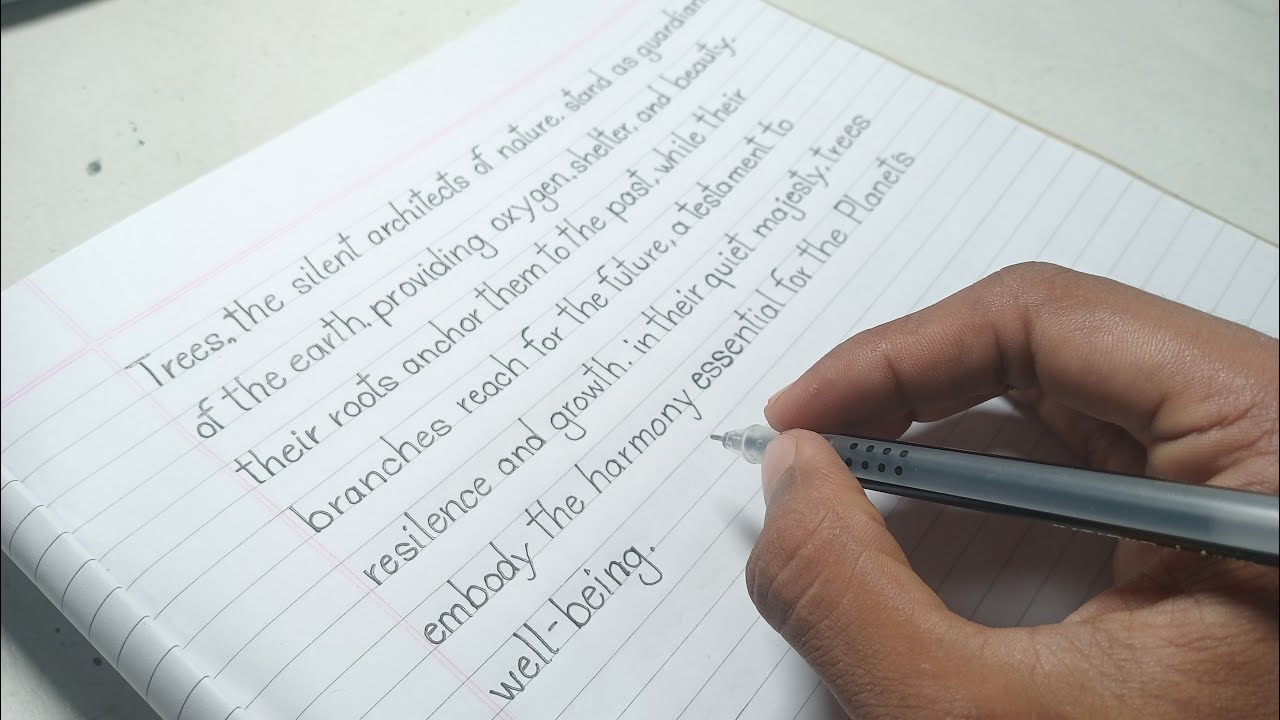 Trees, the silent architects of nature, stand as guardian
of the earth, providing oxygen, shelter, and beauty.
their roots anchor them to the past, while their
branches reach for the future, a testament to
resilence and growth. in their quiet majesty, trees
embody the harmony essential for the Planets
well-being.